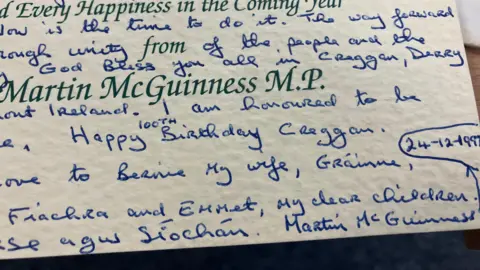 d Every Happiness in the Coming Year
Now is the time to do it. The way forward
rough unity from of the people and the
God Bless you all in Creggan, Derry
Martin McGuinness M.P.
hout Ireland. I am honoured to be
e, Happy 100TH Birthday Creggan.
24-12-199
love to Bernie my wife, Gráinne,
Fiachra and Emmet, my dear children.
se agus Síochán. Martin McGuinness